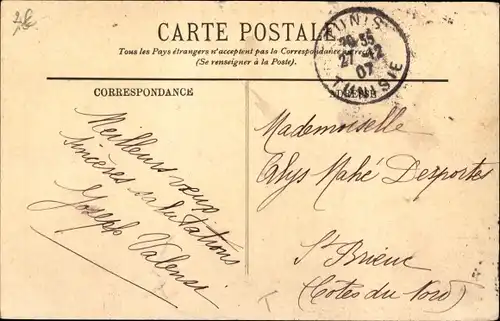 CARTE POSTALE
Tous les Pays étrangers n'acceptent pas la Correspondance au recto
(Se renseigner à la Poste).
TUNIS
20 35
27 12
07
TUNISIE
CORRESPONDANCE
ADRESSE
Meilleurs vœux
sincères salutations
Joseph Valensi
Mademoiselle
Alys Mahé Desportes
St Brieuc
(Côtes du Nord)